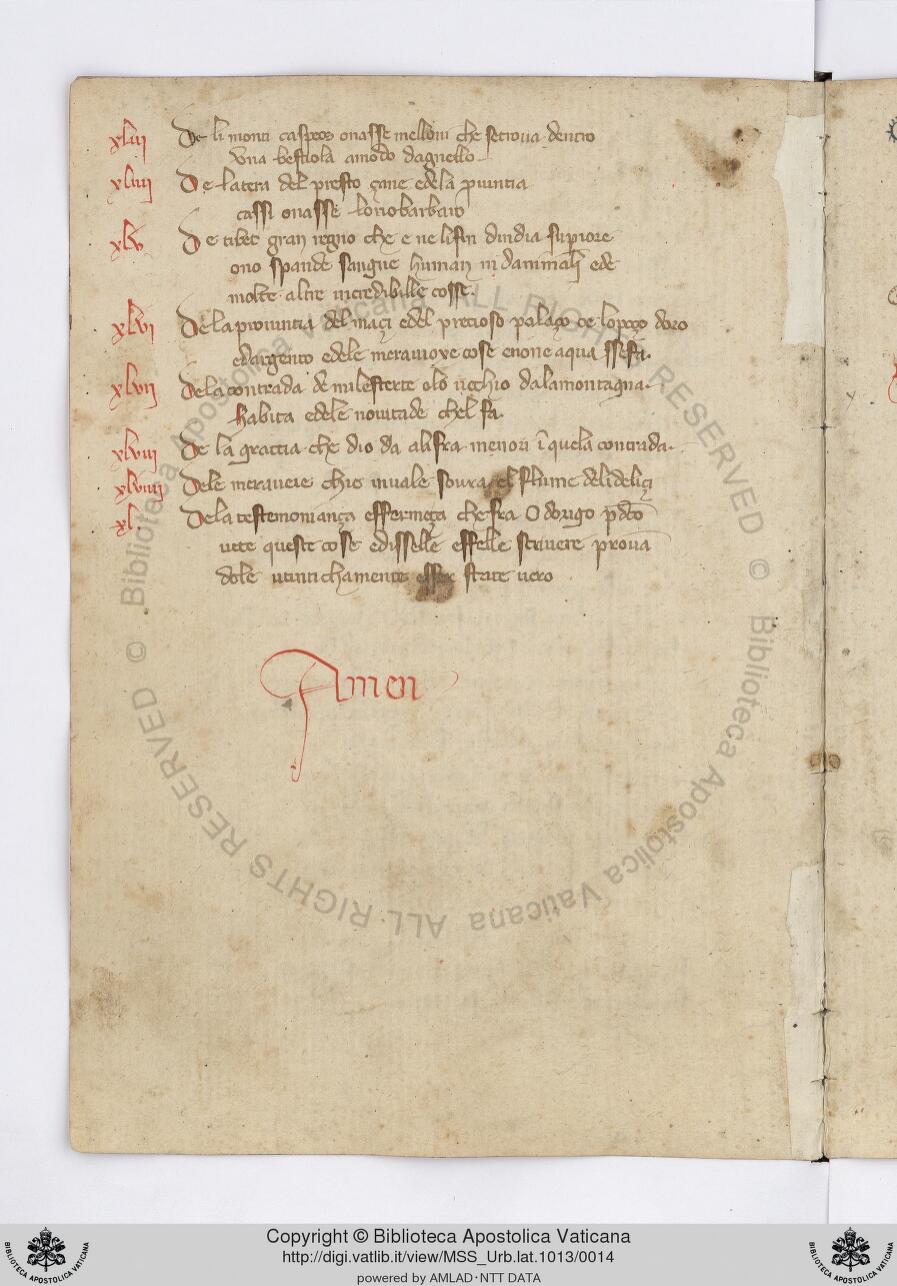 xliii De li monti caspeos onasse melloni che setrova dentro
vna bestiola amodo dagnello
xliiii De latera del presto çane edela puintia
cassi onasse loriobarbaro
xlv De tibet gran regno che e ne lifin dindia supiore
ono spande sangue human ni danimali ede
molte altre incredibille cosse.
xlvi De la prouintia del maçi edel precioso palaço ce lopoço doro
edargento edele merauoye cose enone aqua
xlvii De la contrada de milesterte olo uechio dalamontagna.
habita edele nouitade chel fa.
xlviii De la graccia che dio da alifra menori ĩ quela contrada.
xlviiii Dele meraueie chio inuale soura el flume delideliçi
xl. Dela testemoniança effermeça chefra Odorigo pdc̃o
uete queste cose edisselle effelle scriuere prouã
dole utintichamente esser state uero
Amen
© Biblioteca Apostolica Vaticana ALL RIGHTS RESERVED © Biblioteca Apostolica Vaticana ALL RIGHTS RESERVED
BIBLIOTECA APOSTOLICA VATICANA
Copyright © Biblioteca Apostolica Vaticana
http://digi.vatlib.it/view/MSS_Urb.lat.1013/0014
powered by AMLAD·NTT DATA
BIBLIOTECA APOSTOLICA VATICANA